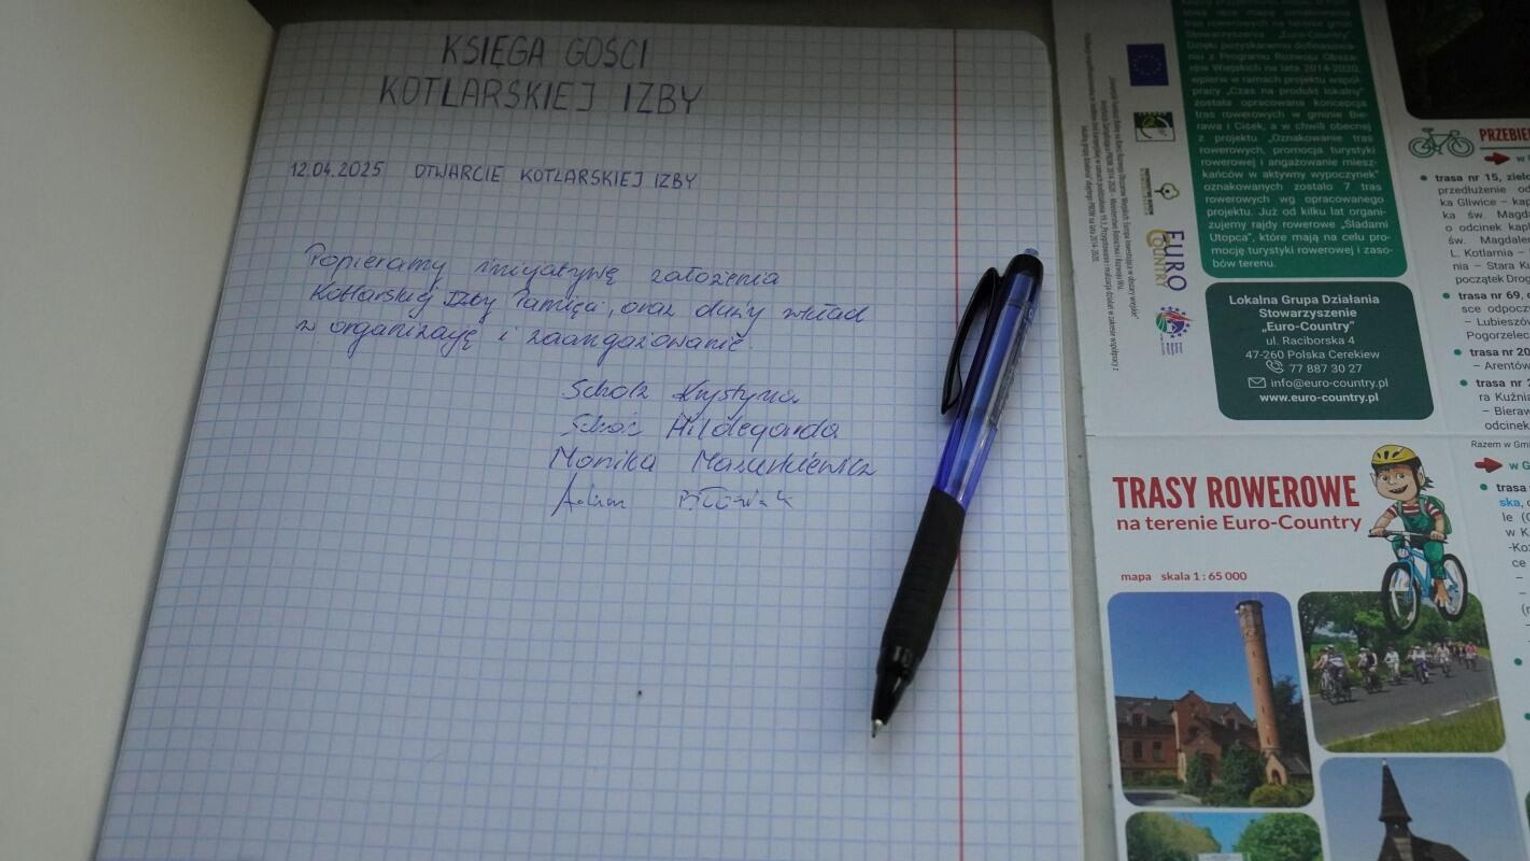 KSIĘGA GOŚCI
KOTLARSKIEJ IZBY
12.04.2025 OTWARCIE KOTLARSKIEJ IZBY
Popieramy inicjatywę założenia
Kotlarskiej Izby Pamięci, oraz duży wkład
w organizację i zaangażowanie.
Scholz Krystyna
Hildegarda
Monika Mazurkiewicz
tras rowerowych na terenie gmin
Stowarzyszenia „Euro-Country".
Dzięki pozyskanemu dofinansowa-
niu z Programu Rozwoju Obsza-
rów Wiejskich na lata 2014-2020,
wpierw w ramach projektu współ-
pracy „Czas na produkt lokalny"
została opracowana koncepcja
tras rowerowych w gminie Bie-
rawa i Cisek, a w chwili obecnej
z projektu „Oznakowanie tras
rowerowych, promocja turystyki
rowerowej i angażowanie miesz-
kańców w aktywny wypoczynek"
oznakowanych zostało 7 tras
rowerowych wg opracowanego
projektu. Już od kilku lat organi-
zujemy rajdy rowerowe „Śladami
Utopca", które mają na celu pro-
mocję turystyki rowerowej i zaso-
bów terenu.
EURO
COUNTRY
Lokalna Grupa Działania
Stowarzyszenie
„Euro-Country"
ul. Raciborska 4
47-260 Polska Cerekiew
77 887 30 27
info@euro-country.pl
www.euro-country.pl
TRASY ROWEROWE
na terenie Euro-Country
mapa skala 1 : 65 000
PRZEBIE
w
trasa nr 15, ziel
przedłużenie od
ka Gliwice – kap
ka św. Magd
o odcinek kapl
św. Magdale
L. Kotlarnia –
nia – Stara Ku
początek Drog
trasa nr 69,
sce odpocz
– Lubieszów
Pogorzelec
trasa nr 20
– Arentów
trasa nr
ra Kuźnia
– Bieraw
odcinek
Razem w Gm
w G
trasa
ska,
le (
w K
-Koź
ce